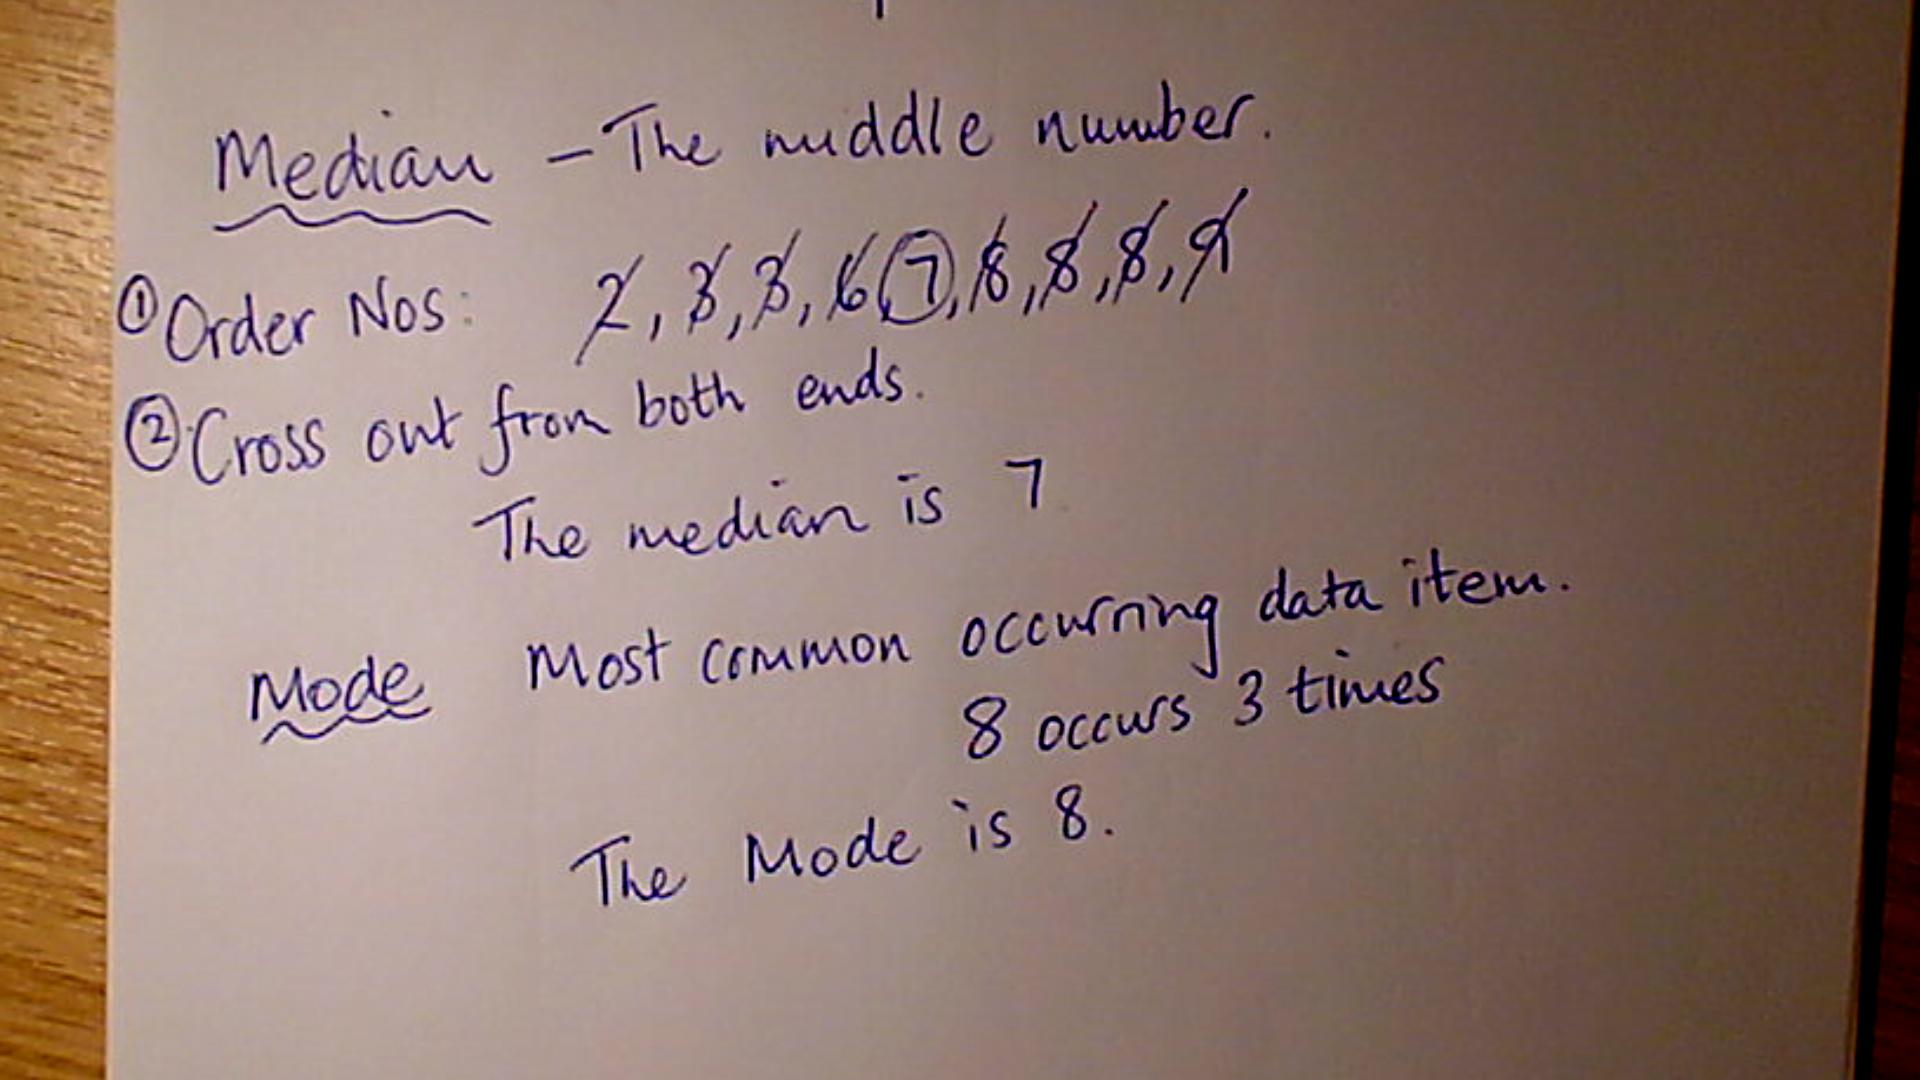 Median - The middle number.
① Order Nos: 2, 3, 3, 6, 7, 8, 8, 8, 9
② Cross out from both ends.
The median is 7
Mode Most common occurring data item.
8 occurs 3 times
The Mode is 8.